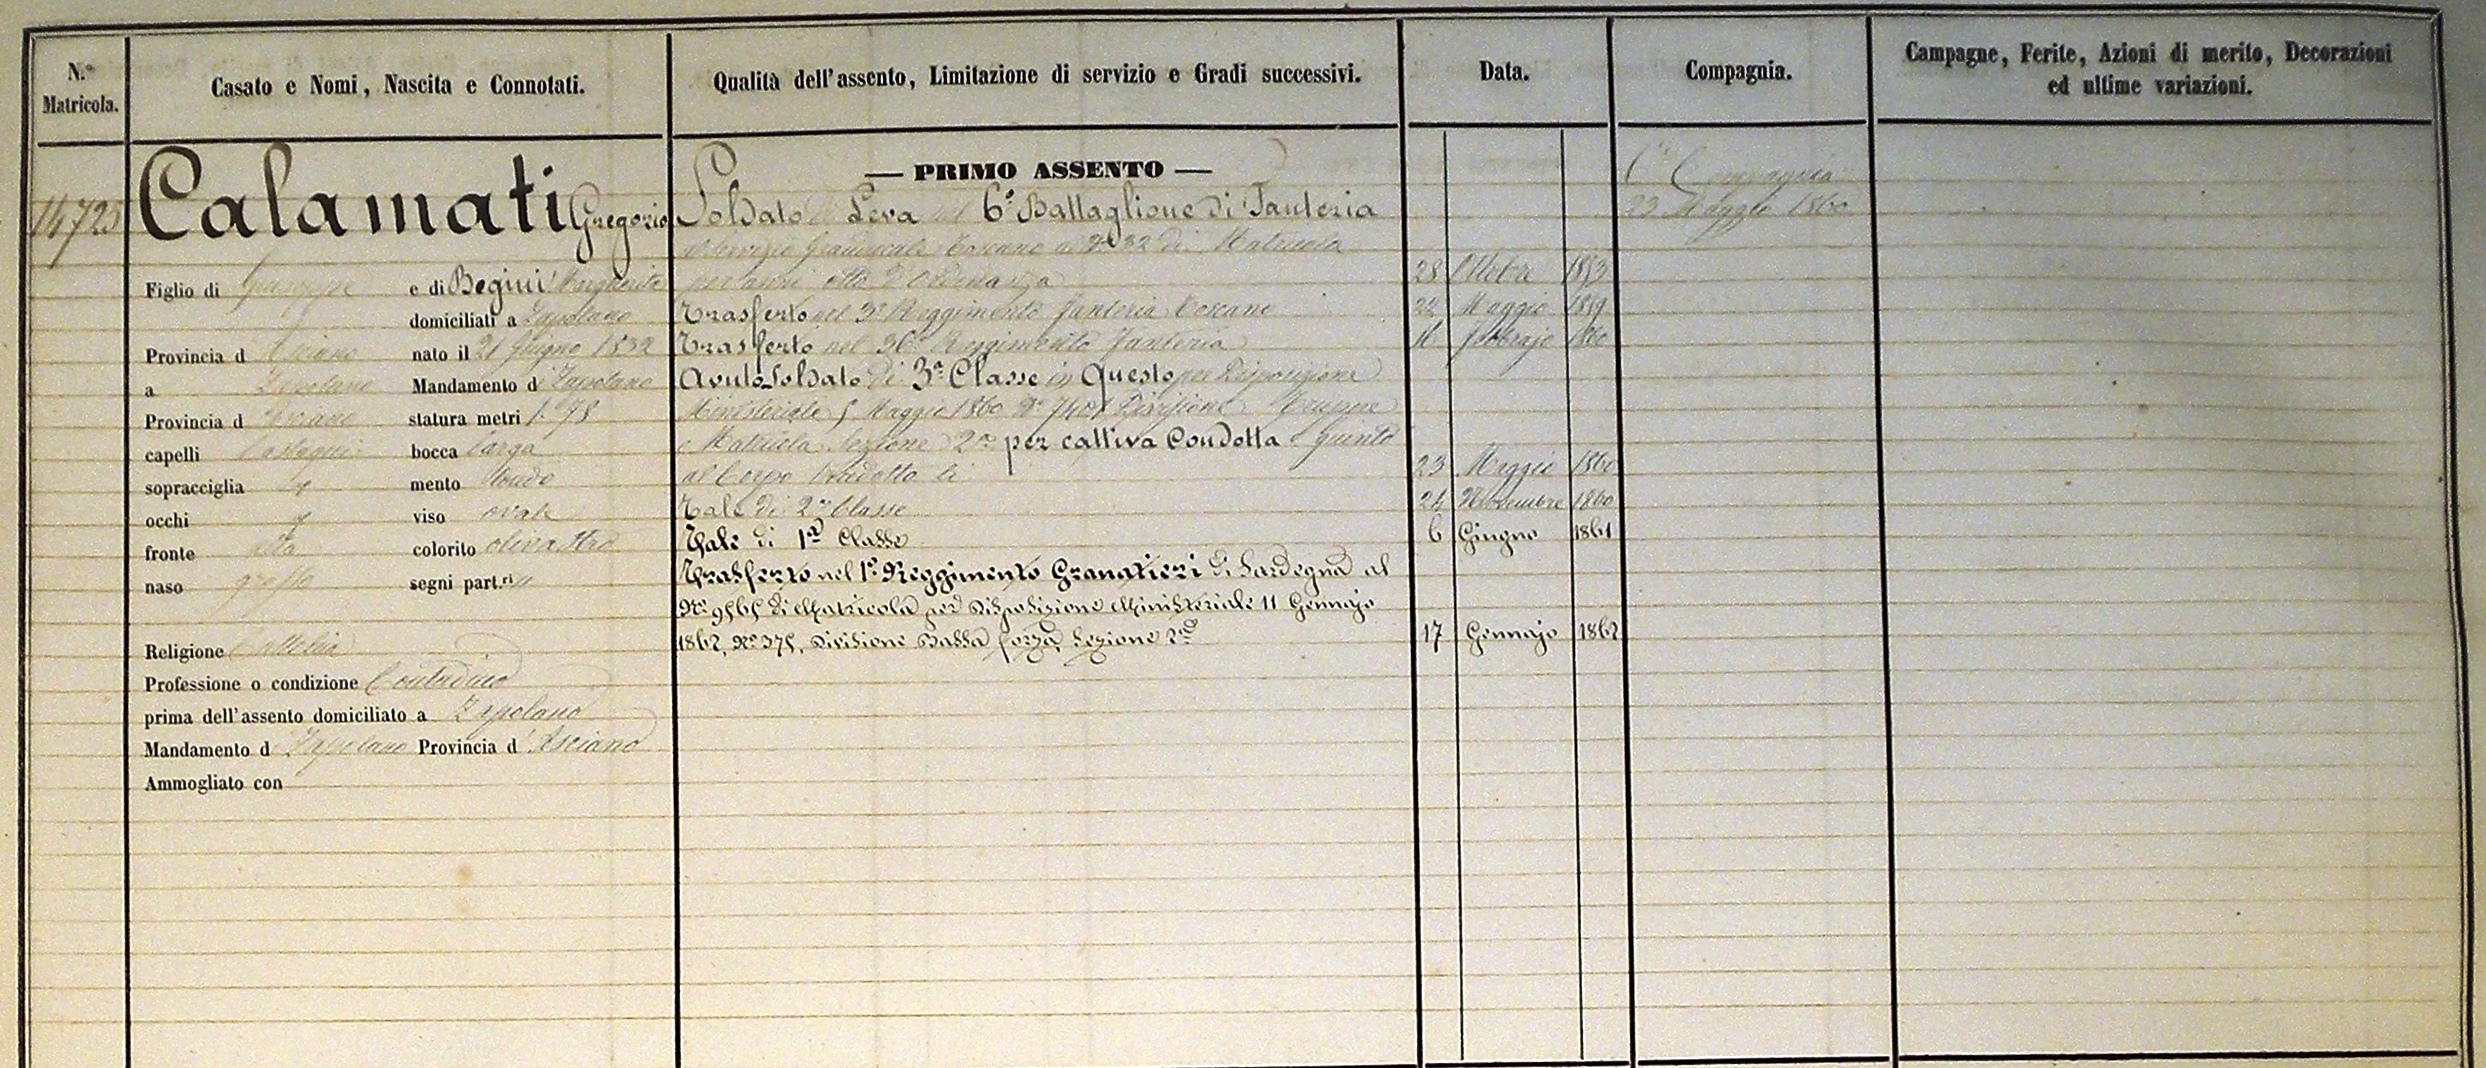 N.° Matricola.
Casato e Nomi, Nascita e Connotati.
Qualità dell'assento, Limitazione di servizio e Gradi successivi.
Data.
Compagnia.
Campagne, Ferite, Azioni di merito, Decorazioni
ed ultime variazioni.
14725
Calamati Gregorio
Figlio di Giuseppe e di Begini Margherita
domiciliati a Zapolano
Provincia d Asciano nato il 21 Giugno 1832
a Zapolano Mandamento d Zapolano
Provincia d Asciano statura metri 1.78
capelli Castagni bocca larga
sopracciglia mento tondo
occhi viso ovale
fronte alta colorito olivastro
naso grosso segni part.ri
Religione Cattolica
Professione o condizione Contadino
prima dell'assento domiciliato a Zapolano
Mandamento d Zapolano Provincia d Asciano
Ammogliato con
— PRIMO ASSENTO —
Soldato di Leva nel 6° Battaglione di Fanteria
al Servizio Toscano al N° 32 di Matricola
per anni otto d'Ordinanza 28 Ottobre 1853
Trasferto nel 3° Reggimento Fanteria Toscano 22 Maggio 1859
Trasferto nel 36° Reggimento Fanteria 16 Febbrajo 1860
Avuto Soldato di 3a Classe in Questo per Disposizione
Ministeriale 5 Maggio 1860 N° 7401 Divisione Truppe
e Matricola Sezione 2a per cattiva Condotta e giunto
al Corpo 23 Maggio 1860
Tale di 2a Classe 24 Novembre 1860
Tale di 1a Classe 6 Giugno 1861
Trasferto nel 1° Reggimento Granatieri di Sardegna al
N° 9565 di Matricola per Disposizione Ministeriale 11 Gennajo
1862, N° 375, Divisione Bassa forza, Sezione 2a 17 Gennajo 1862
6a Compagnia
23 Maggio 1860